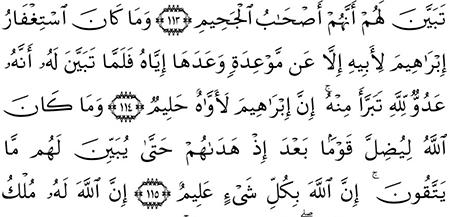 تَبَيَّنَ لَهُمْ أَنَّهُمْ أَصْحَابُ الْجَحِيمِ ﴿١١٣﴾ وَمَا كَانَ اسْتِغْفَارُ
إِبْرَاهِيمَ لِأَبِيهِ إِلَّا عَن مَّوْعِدَةٍ وَعَدَهَا إِيَّاهُ فَلَمَّا تَبَيَّنَ لَهُ أَنَّهُ
عَدُوٌّ لِّلَّهِ تَبَرَّأَ مِنْهُ ۚ إِنَّ إِبْرَاهِيمَ لَأَوَّاهٌ حَلِيمٌ ﴿١١٤﴾ وَمَا كَانَ
اللَّهُ لِيُضِلَّ قَوْمًا بَعْدَ إِذْ هَدَىٰهُمْ حَتَّىٰ يُبَيِّنَ لَهُم مَّا
يَتَّقُونَ ۚ إِنَّ اللَّهَ بِكُلِّ شَيْءٍ عَلِيمٌ ﴿١١٥﴾ إِنَّ اللَّهَ لَهُ مُلْكُ